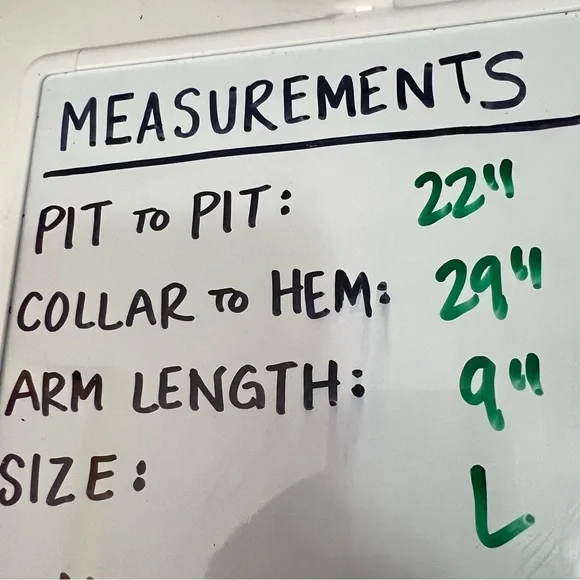 MEASUREMENTS
PIT TO PIT: 22"
COLLAR TO HEM: 29"
ARM LENGTH: 9"
SIZE: L